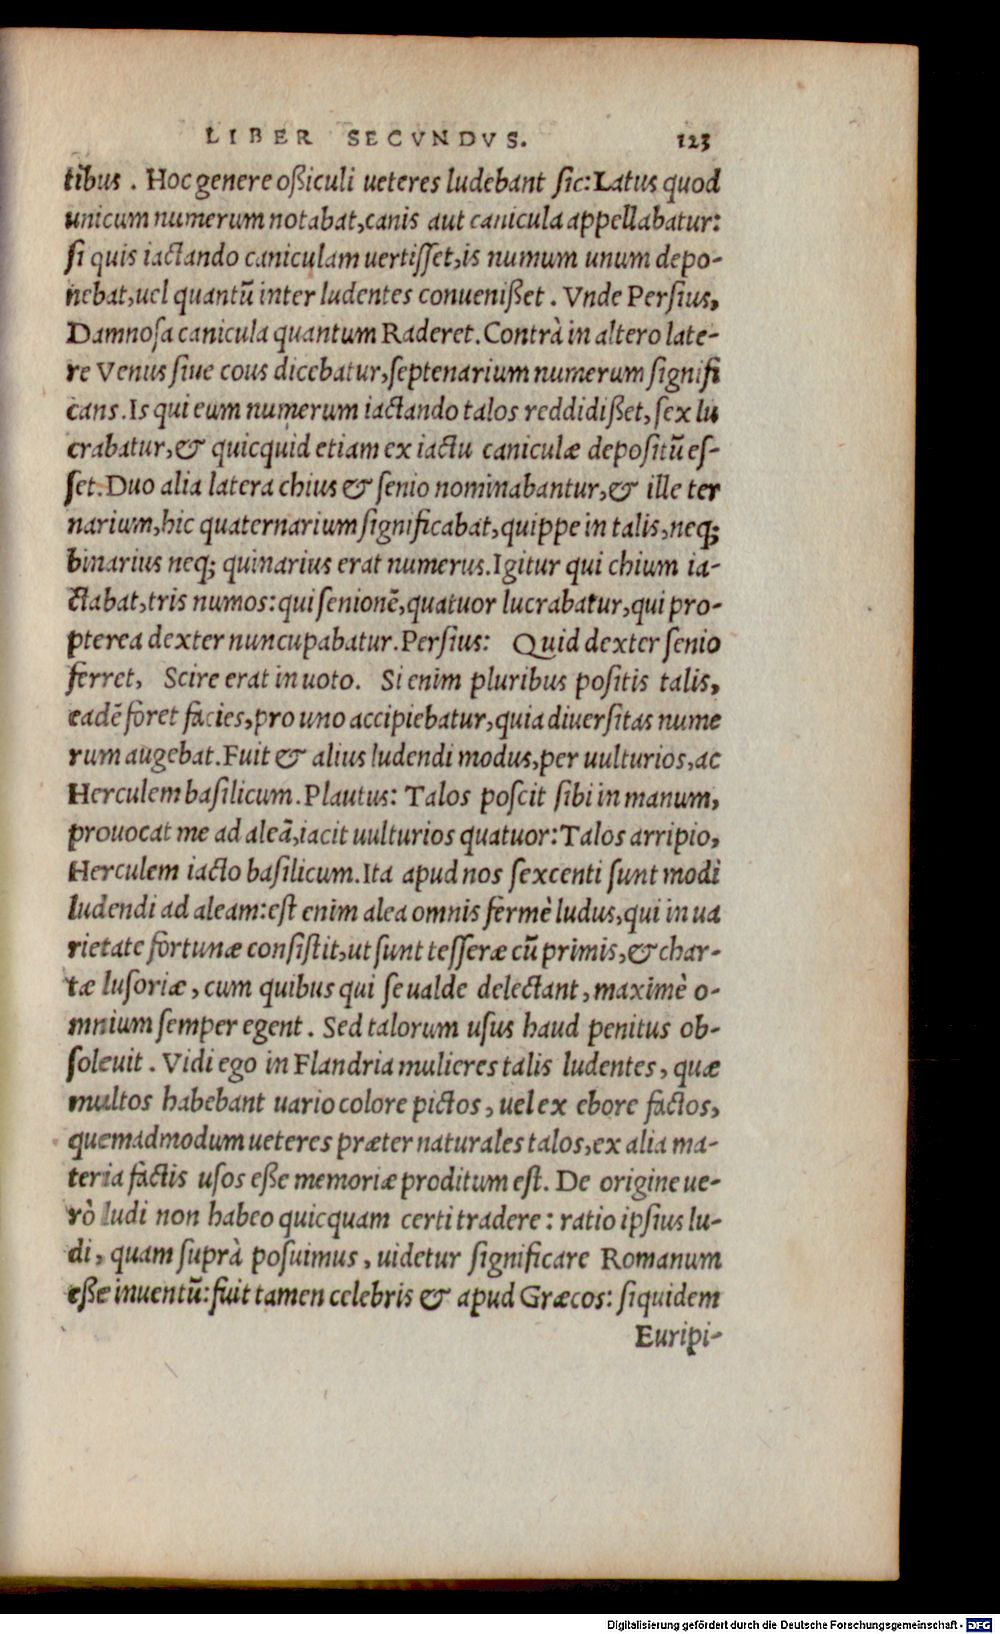 LIBER SECVNDVS. 123
tibus . Hoc genere oßiculi ueteres ludebant ſic: Latus quod
unicum numerum notabat, canis aut canicula appellabatur:
ſi quis iactando caniculam uertiſſet, is numum unum depo-
nebat, uel quantũ inter ludentes conuenißet . Vnde Perſius,
Damnoſa canicula quantum Raderet. Contrà in altero late-
re Venus ſiue cous dicebatur, ſeptenarium numerum ſignifi
cans. Is qui eum numerum iactando talos reddidißet, ſex lu
crabatur, & quicquid etiam ex iactu caniculæ depoſitũ eſ-
ſet. Duo alia latera chius & ſenio nominabantur, & ille ter
narium, hic quaternarium ſignificabat, quippe in talis, neq;
binarius neq; quinarius erat numerus. Igitur qui chium ia-
ctabat, tris numos: qui ſenionẽ, quatuor lucrabatur, qui pro-
pterea dexter nuncupabatur. Perſius: Quid dexter ſenio
ferret, Scire erat in uoto. Si enim pluribus poſitis talis,
eadẽ foret facies, pro uno accipiebatur, quia diuerſitas nume
rum augebat. Fuit & alius ludendi modus, per uulturios, ac
Herculem baſilicum. Plautus: Talos poſcit ſibi in manum,
prouocat me ad aleã, iacit uulturios quatuor: Talos arripio,
Herculem iacto baſilicum. Ita apud nos ſexcenti ſunt modi
ludendi ad aleam: eſt enim alea omnis fermè ludus, qui in ua
rietate fortunæ conſiſtit, ut ſunt teſſeræ cũ primis, & char-
tæ luſoriæ, cum quibus qui ſe ualde delectant, maximè o-
mnium ſemper egent . Sed talorum uſus haud penitus ob-
ſoleuit . Vidi ego in Flandria mulieres talis ludentes, quæ
multos habebant uario colore pictos, uel ex ebore factos,
quemadmodum ueteres præter naturales talos, ex alia ma-
teria factis uſos eße memoriæ proditum eſt. De origine ue-
rò ludi non habeo quicquam certi tradere: ratio ipſius lu-
di, quam ſuprà poſuimus, uidetur ſignificare Romanum
eße inuentũ: fuit tamen celebris & apud Græcos: ſiquidem
Euripi-
Digitalisierung gefördert durch die Deutsche Forschungsgemeinschaft - DFG